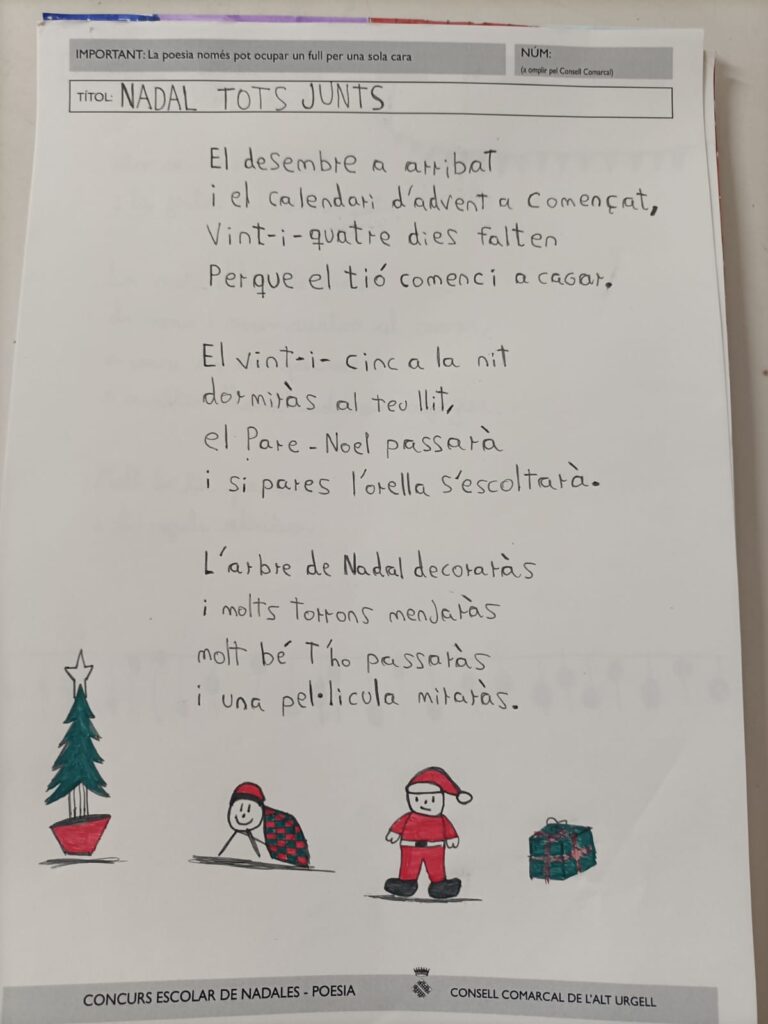 IMPORTANT: La poesia només pot ocupar un full per una sola cara
NÚM:
(a omplir pel Consell Comarcal)
TÍTOL: NADAL TOTS JUNTS
El desembre a arribat
i el calendari d'advent a començat,
Vint-i-quatre dies falten
Perque el tió comenci a cagar.
El vint-i-cinc a la nit
dormiràs al teu llit,
el Pare-Noel passarà
i si pares l'orella s'escoltarà.
L'arbre de Nadal decoraràs
i molts torrons menjaràs
molt bé t'ho passaràs
i una pel·licula miraràs.
CONCURS ESCOLAR DE NADALES - POESIA
CONSELL COMARCAL DE L'ALT URGELL